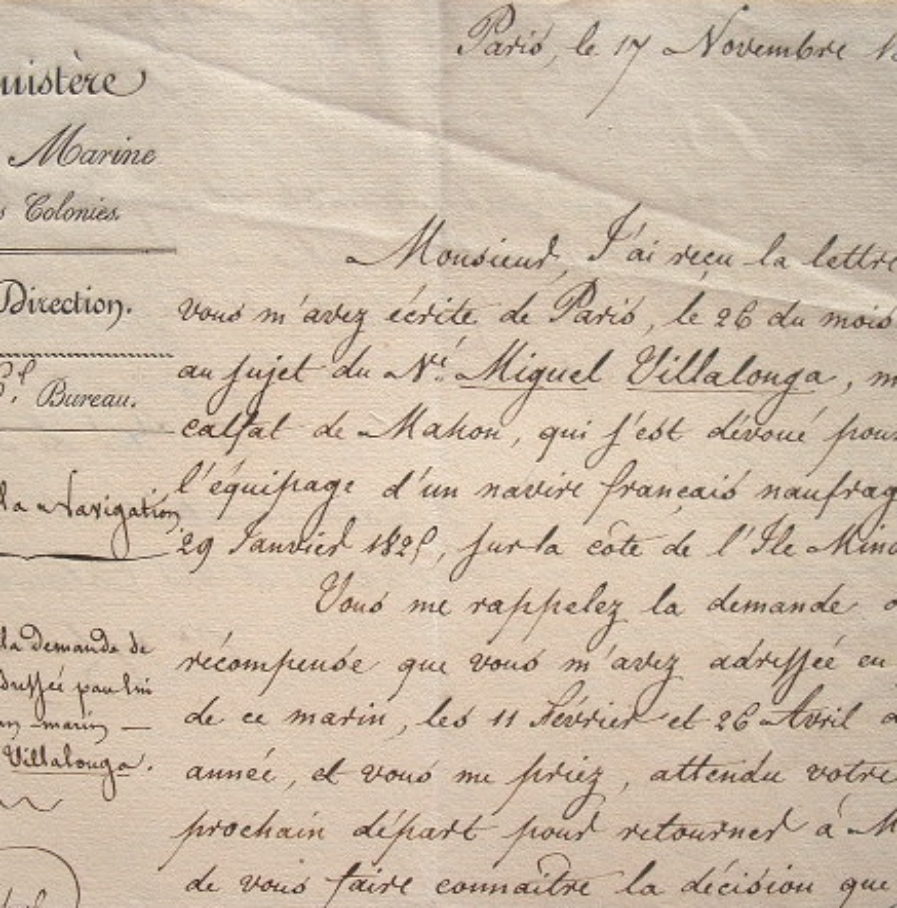 Paris, le 17 Novembre 18
nistère
Marine
s Colonies.
Direction.
Bureau.
la Navigation
la demande de
adressée par lui
marin —
Villalonga.
Monsieur, J'ai reçu la lettre
vous m'avez écrite de Paris, le 26 du mois
au sujet du Né. Miguel Villalonga, m
calfat de Mahon, qui s'est dévoué pour
l'équipage d'un navire français naufrag
29 Janvier 1825, sur la côte de l'Ile Mino
Vous me rappelez la demande d
récompense que vous m'avez adressée en
de ce marin, les 11 Février et 26 Avril d
année, et vous me priez, attendu votre
prochain départ pour retourner à M
de vous faire connaître la décision que